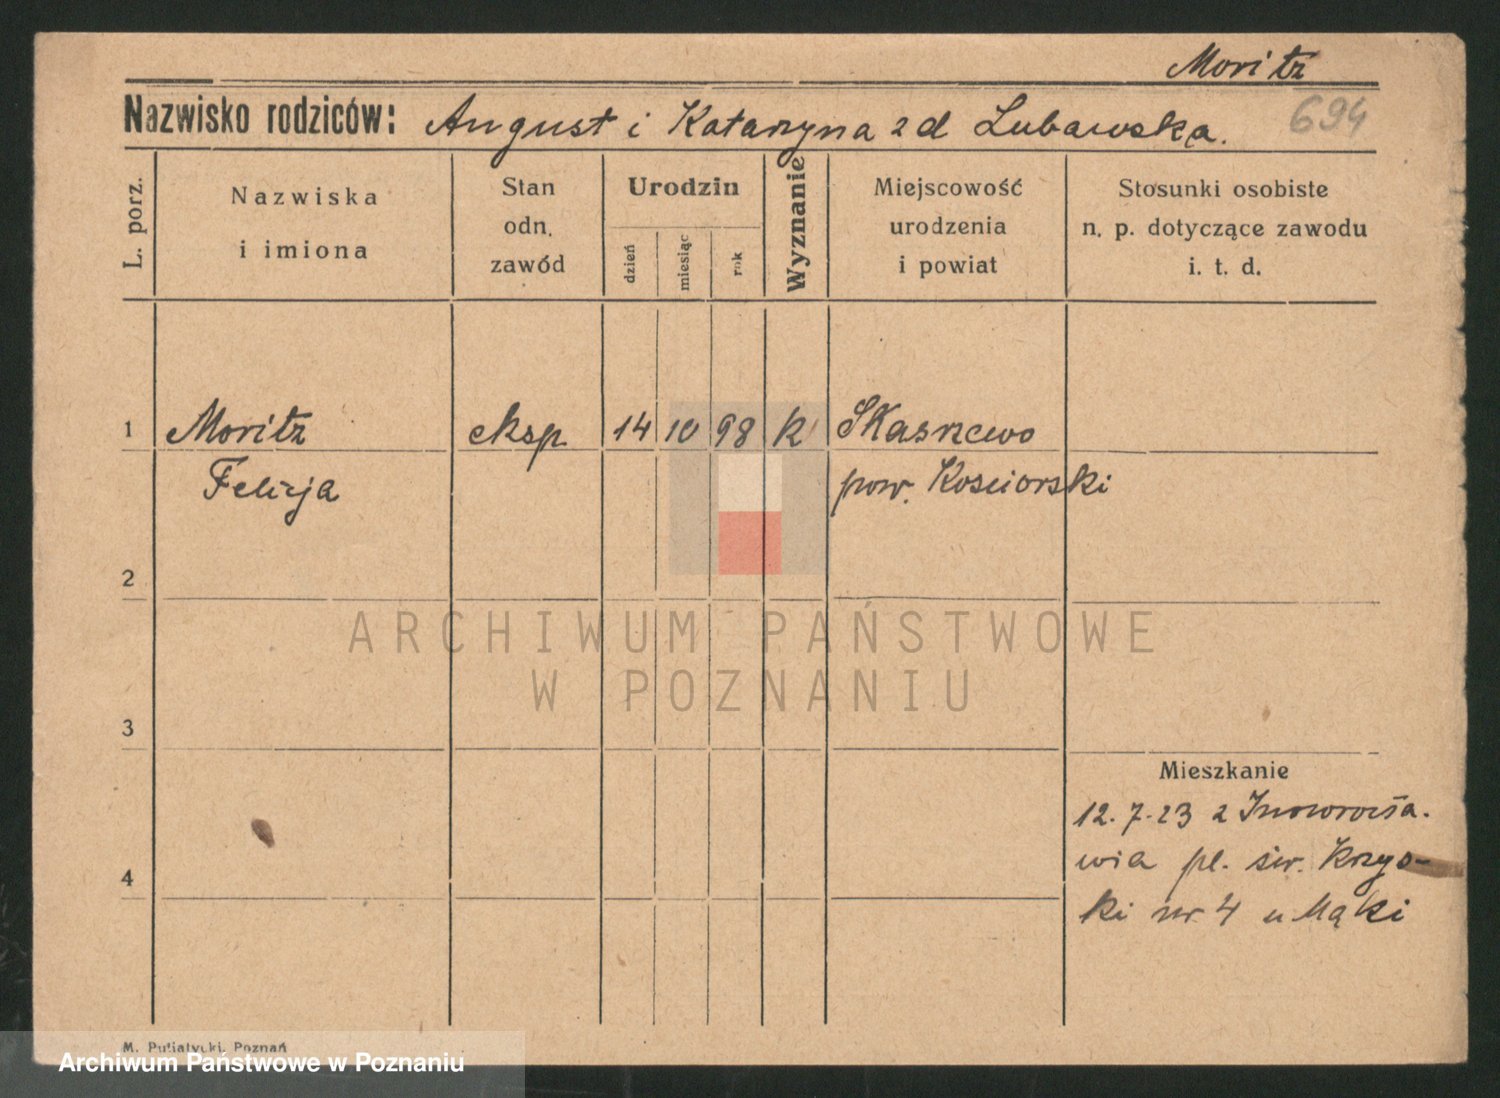 Moritz
Nazwisko rodziców: August i Katarzyna zd Lubawska.
694
L. porz.
Nazwiska
i imiona
Stan
odn.
zawód
Urodzin
dzień
miesiąc
rok
Wyznanie
Miejscowość
urodzenia
i powiat
Stosunki osobiste
n. p. dotyczące zawodu
i. t. d.
1 Moritz eksp 14 10 98 k Skasnewo
Felicja pow. Kosciorski
2
ARCHIWUM PAŃSTWOWE
W POZNANIU
3
Mieszkanie
12.7.23 z Inowrocła.
wia pl. św. Krzys-
4
ki nr 4 u Mąki
M. Putiatycki, Poznań
Archiwum Państwowe w Poznaniu